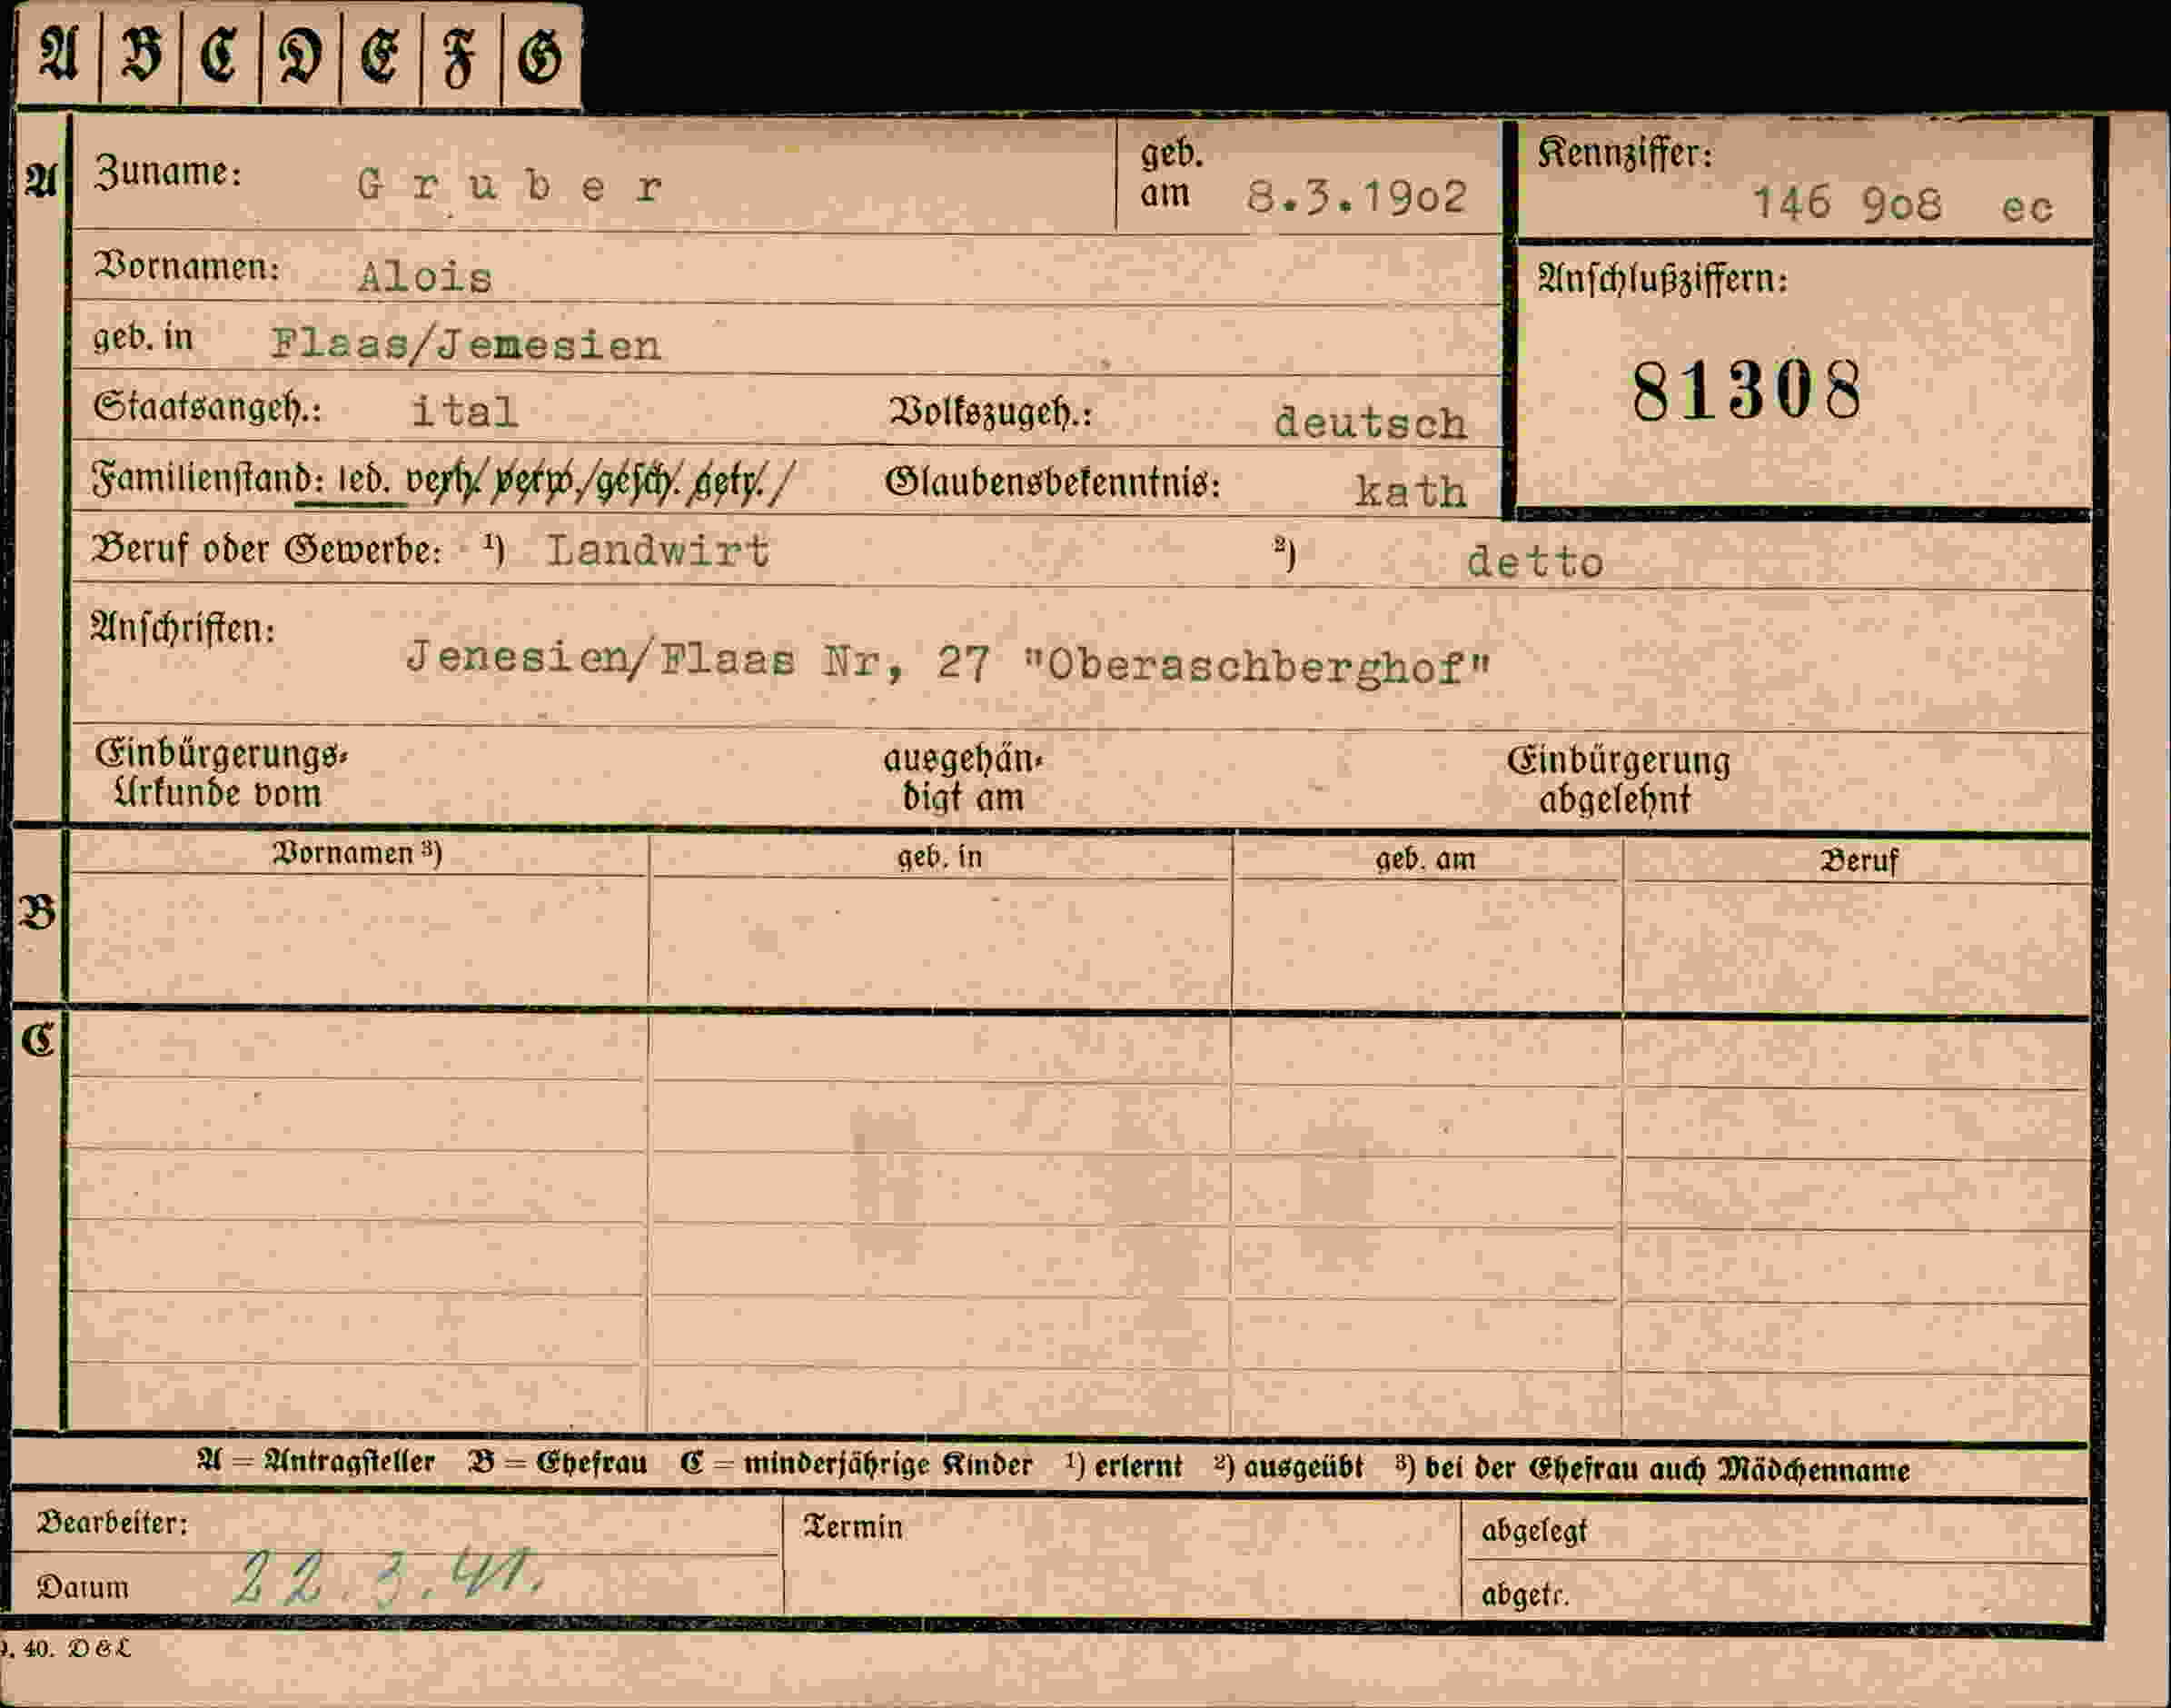 A B C D E F G
A Zuname: Gruber geb. am 8.3.19o2 Kennziffer: 146 9o8 ec
Vornamen: Alois Anschlußziffern:
geb. in Flaas/Jemesien
81308
Staatsangeh.: ital Volkszugeh.: deutsch
Familienstand: led. verh. verw./gesch. getr. / Glaubensbekenntnis: kath
Beruf oder Gewerbe: ¹) Landwirt ²) detto
Anschriften:
Jenesien/Flaas Nr, 27 "Oberaschberghof"
Einbürgerungs- ausgehän- Einbürgerung
Urkunde vom digt am abgelehnt
Vornamen ³) geb. in geb. am Beruf
B
C
A = Antragsteller B = Ehefrau C = minderjährige Kinder ¹) erlernt ²) ausgeübt ³) bei der Ehefrau auch Mädchenname
Bearbeiter: Termin abgelegt
Datum 22.3.41. abgetr.
40. D & L